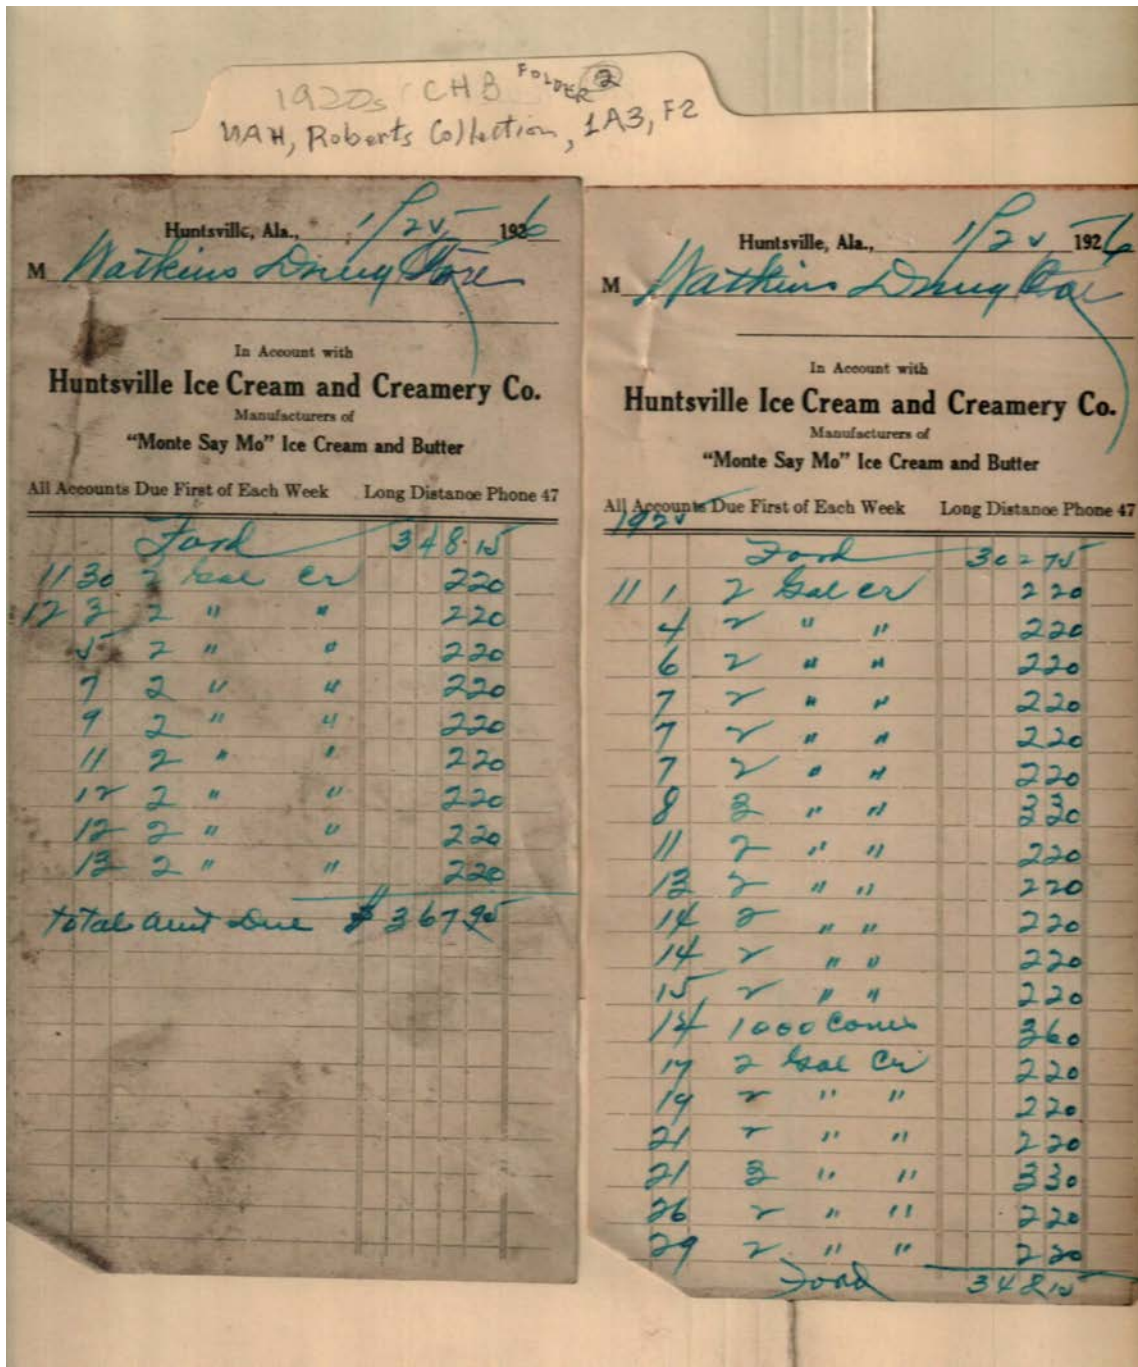 1920s CHB FOLDER 2
UAH, Roberts Collection, 1A3, F2
Huntsville, Ala., 1/25 1926
M Watkins Drug Store
In Account with
Huntsville Ice Cream and Creamery Co.
Manufacturers of
"Monte Say Mo" Ice Cream and Butter
All Accounts Due First of Each Week Long Distance Phone 47
Ford 348.15
11 30 2 Gal Cr 220
12 3 2 " " 220
5 2 " " 220
7 2 " " 220
9 2 " " 220
11 2 " " 220
12 2 " " 220
12 2 " " 220
13 2 " " 220
Total Amt Due $ 367 95
Huntsville, Ala., 1/25 1926
M Watkins Drug Store
In Account with
Huntsville Ice Cream and Creamery Co.
Manufacturers of
"Monte Say Mo" Ice Cream and Butter
All Accounts Due First of Each Week Long Distance Phone 47
1925
Ford 302 75
11 1 2 Gal Cr 220
4 2 " " 220
6 2 " " 220
7 2 " " 220
7 2 " " 220
7 2 " " 220
8 3 " " 330
11 2 " " 220
13 2 " " 220
14 2 " " 220
14 2 " " 220
15 2 " " 220
14 1000 Cones 360
17 2 Gal Cr 220
19 2 " " 220
21 2 " " 220
21 3 " " 330
26 2 " " 220
29 2 " " 220
Ford 348 15